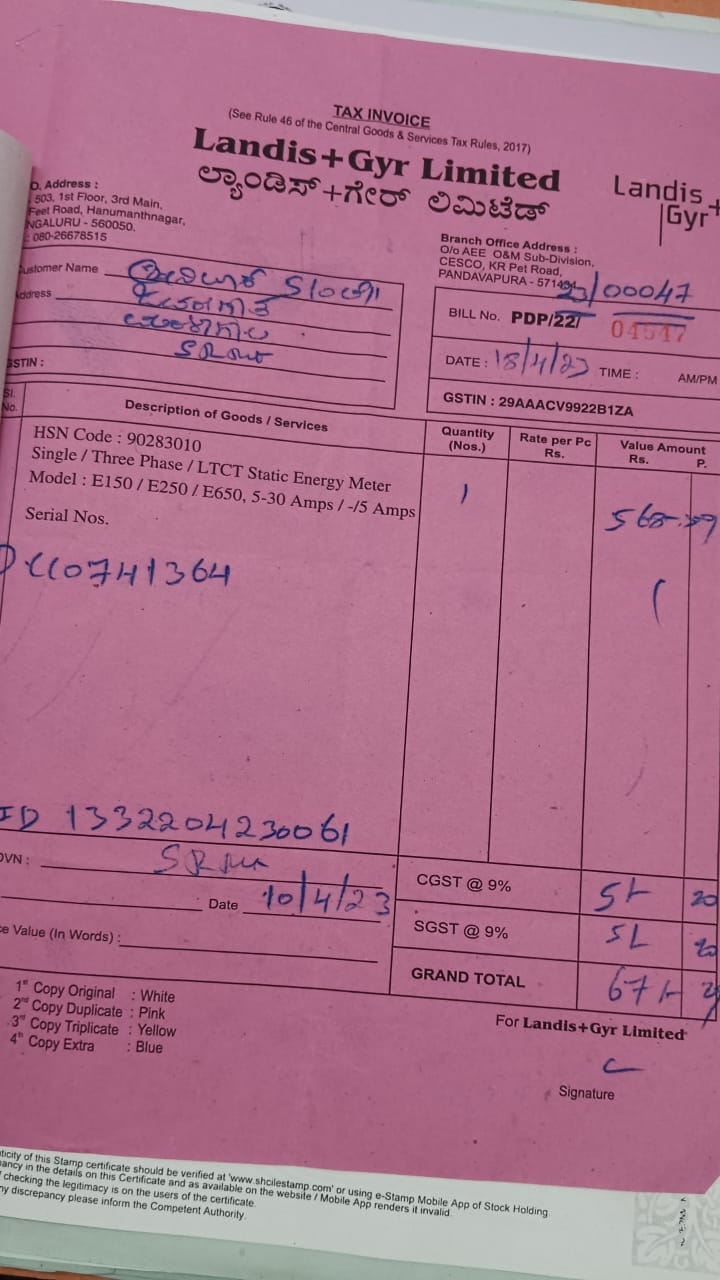 TAX INVOICE
(See Rule 46 of the Central Goods & Services Tax Rules, 2017)
Landis+Gyr Limited
ಲ್ಯಾಂಡಿಸ್+ಗೇರ್ ಲಿಮಿಟೆಡ್
Landis+
Gyr
O. Address :
503, 1st Floor, 3rd Main,
Feet Road, Hanumanthnagar,
NGALURU - 560050.
: 080-26678515
Branch Office Address :
O/o AEE O&M Sub-Division,
CESCO, KR Pet Road,
PANDAVAPURA - 571434
ustomer Name
Address
GSTIN :
23/00047
BILL No. PDP/22/ 04547
DATE : 18/4/23 TIME : AM/PM
GSTIN : 29AAACV9922B1ZA
Sl. No. Description of Goods / Services Quantity (Nos.) Rate per Pc Rs. Value Amount Rs. P.
HSN Code : 90283010
Single / Three Phase / LTCT Static Energy Meter
Model : E150 / E250 / E650, 5-30 Amps / -/5 Amps 1
Serial Nos.
0741364
ID 1332204230061
OVN :
Date 10/4/23
e Value (In Words) :
CGST @ 9% 20
SGST @ 9% 20
GRAND TOTAL
1st Copy Original : White
2nd Copy Duplicate : Pink
3rd Copy Triplicate : Yellow
4th Copy Extra : Blue
For Landis+Gyr Limited
Signature
ticity of this Stamp certificate should be verified at 'www.shcilestamp.com' or using e-Stamp Mobile App of Stock Holding
ancy in the details on this Certificate and as available on the website / Mobile App renders it invalid.
checking the legitimacy is on the users of the certificate.
ny discrepancy please inform the Competent Authority.